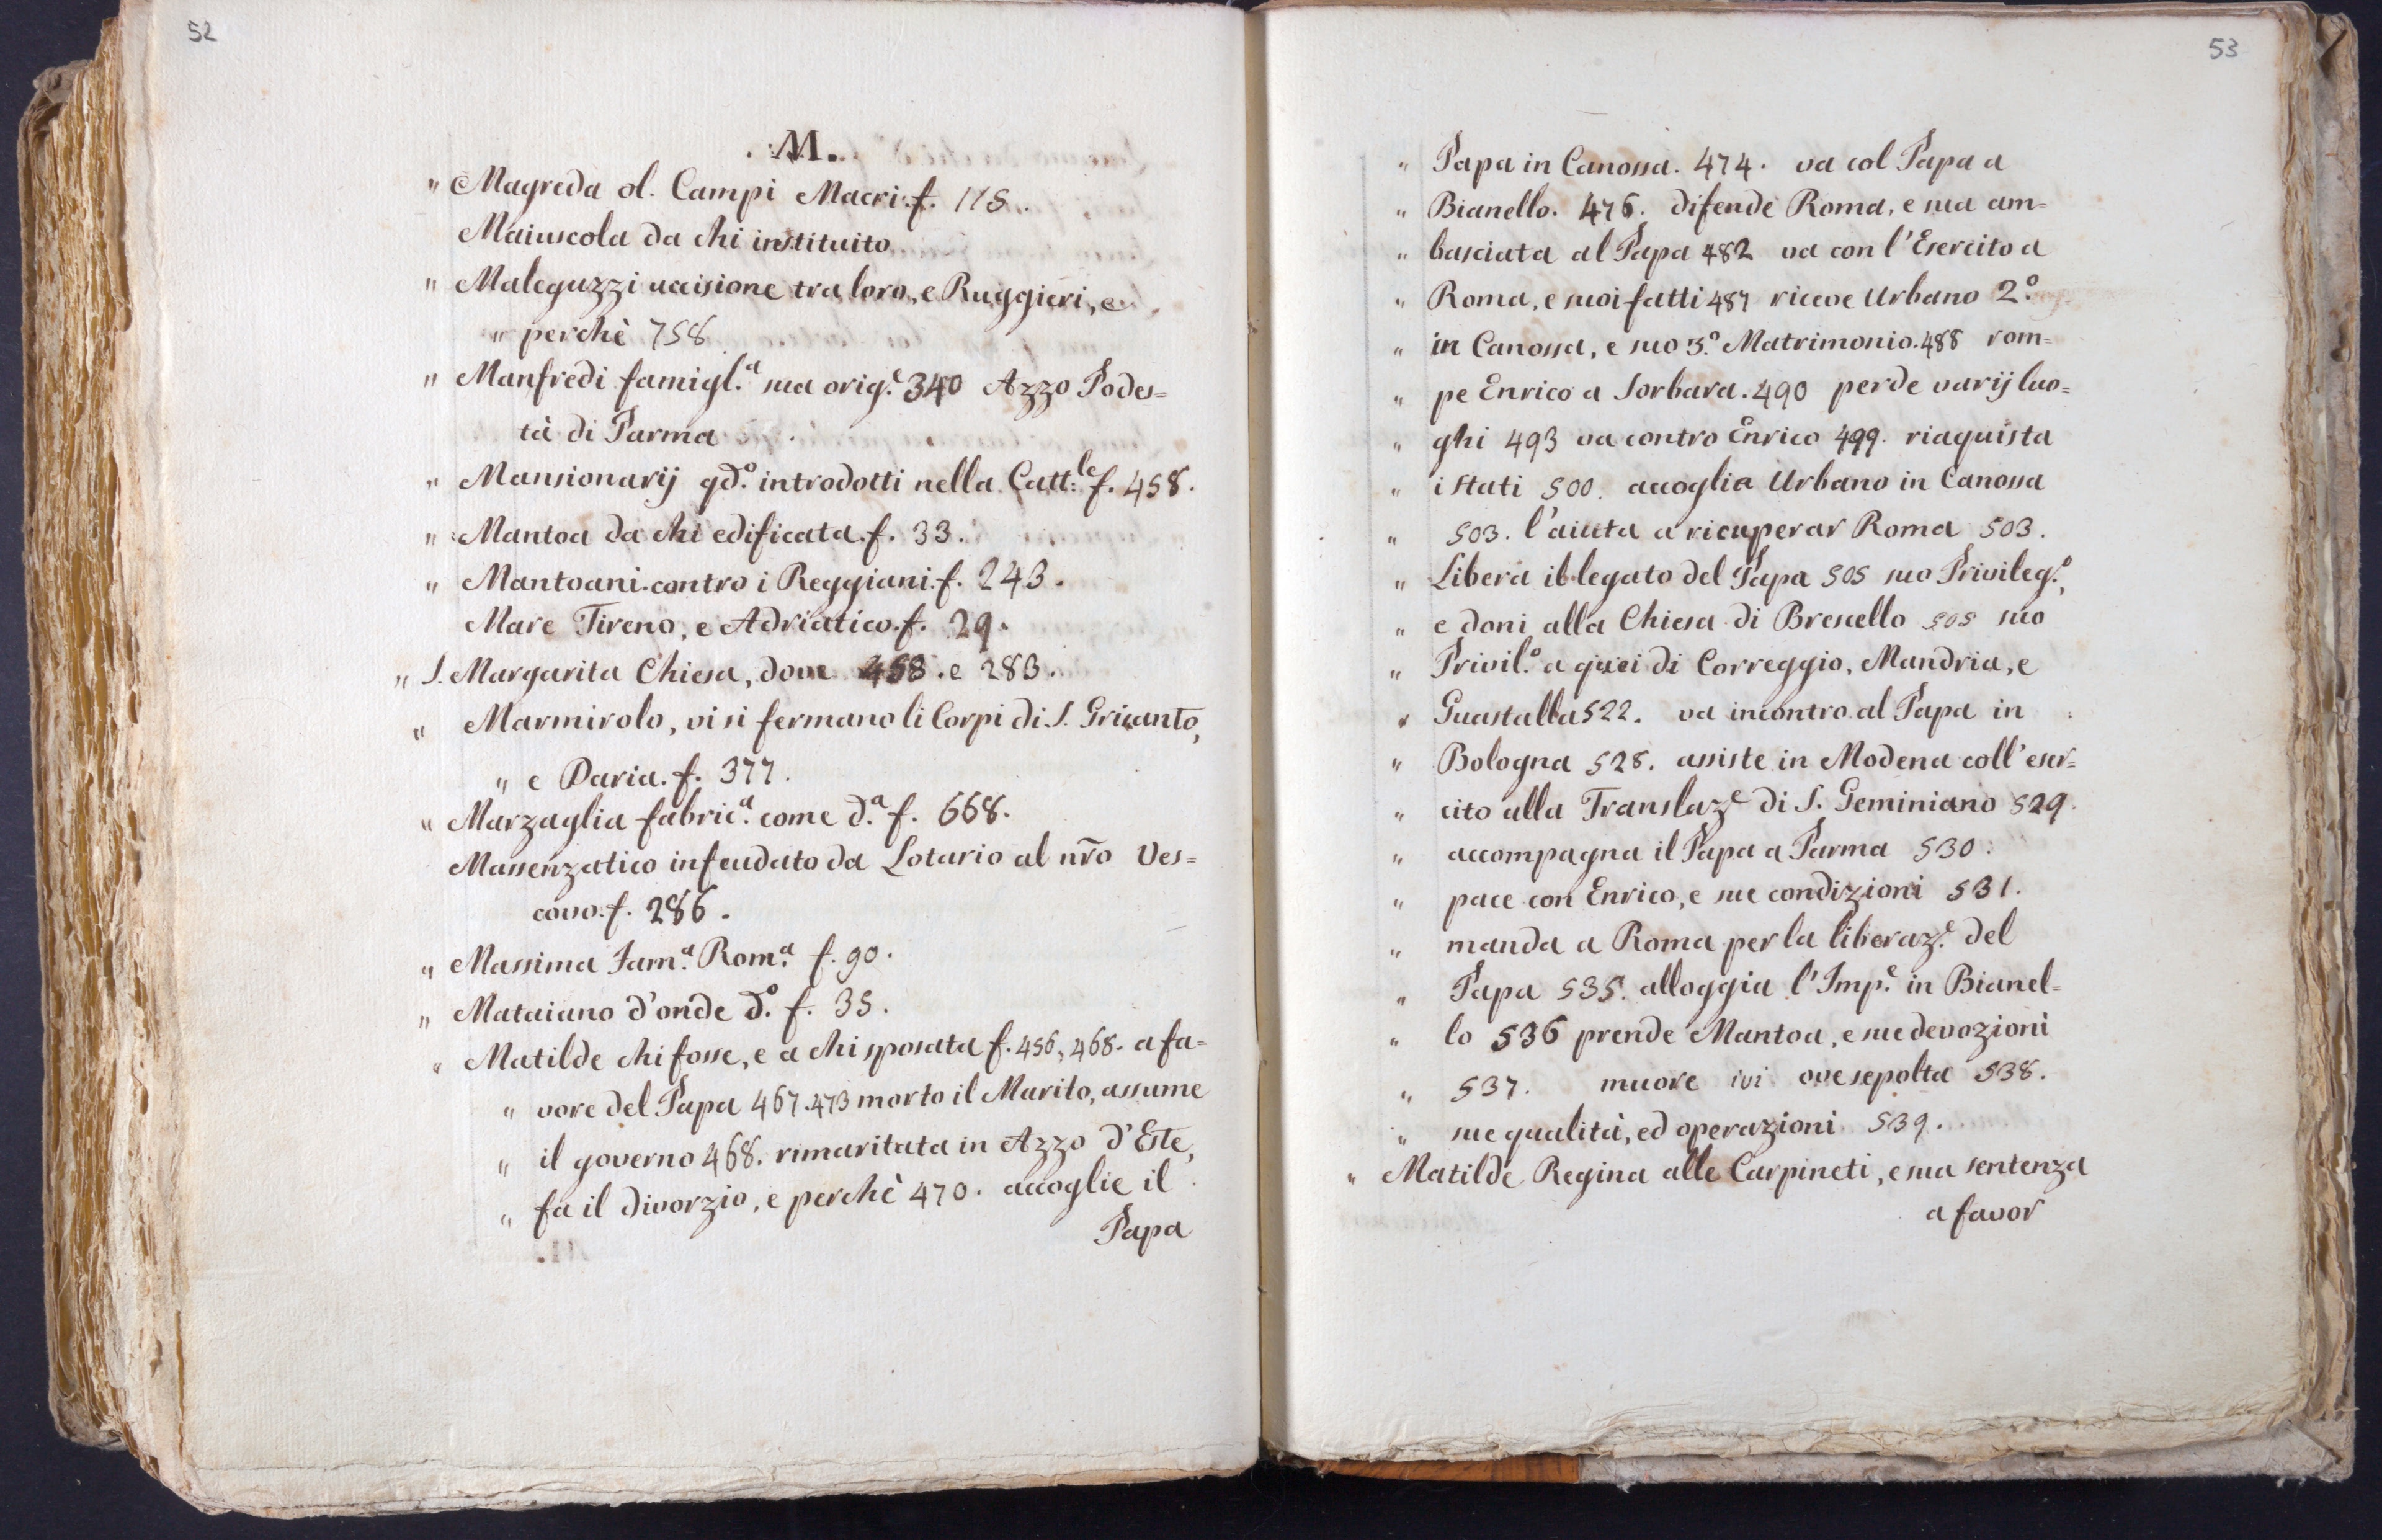 52
.M.
" Magreda ol. Campi Macri. f. 115.
Maiuscola da chi instituito
" Maleguzzi uccisione tra loro, e Ruggieri, e
" perchè 758
" Manfredi famigl.ª sua orig.e 340 Azzo Podes=
tà di Parma
" Mansionarij qdº. introdotti nella Catt:le f. 458.
" Mantoa da chi edificata. f. 33.
" Mantoani. contro i Reggiani. f. 243.
Mare Tireno, e Adriatico. f. 29.
" S. Margarita Chiesa, dove 458. e 283.
" Marmirolo, vi si fermano li Corpi di S. Grisanto,
" e Daria. f. 377.
" Marzaglia fabric.ª come d.ª f. 668.
Massenzatico infeudato da Lotario al nr̃o Ves=
covo. f. 286.
" Massima Fam.ª Rom.ª f. 90.
" Mataiano d'onde d.º f. 35.
" Matilde chi fosse, e a chi sposata f. 456, 468. a fa=
" vore del Papa 467. 473 morto il Marito, assume
" il governo 468. rimaritata in Azzo d'Este,
" fa il divorzio, e perchè 470. accoglie il
Papa
53
" Papa in Canossa. 474. va col Papa a
" Bianello. 476. difende Roma, e sua am=
" basciata al Papa 482 va con l'Esercito a
" Roma, e suoi fatti 487 riceve Urbano 2.º
" in Canossa, e suo 3.º Matrimonio. 488 rom=
" pe Enrico a Sorbara. 490 perde varij luo=
" ghi 493 va contro Enrico 499. riaquista
" i stati 500. accoglia Urbano in Canossa
" 503. l'aiuta a ricuperar Roma 503.
" Libera il legato del Papa 505 suo Privileg.º,
" e doni alla Chiesa di Brescello 505 suo
" Privil.º a quei di Correggio, Mandria, e
" Guastalla 522. va incontro al Papa in
" Bologna 528. assiste in Modena coll'eser=
" cito alla Translaz.e di S. Geminiano 529.
" accompagna il Papa a Parma 530.
" pace con Enrico, e sue condizioni 531.
" manda a Roma per la liberaz.e del
" Papa 535. alloggia l'Imp.e in Bianel=
" lo 536 prende Mantoa, e sue devozioni
" 537. muore ivi ove sepolta 538.
" sue qualità, ed operazioni 539.
" Matilde Regina alle Carpineti, e sua sentenza
a favor